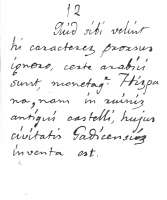 12
Quid sibi velint
hi caracteres prorsus
ignoro, certe arabici
sunt, monetaq. Hispa
na, nam in ruinis
antiqui castelli, hujus
civitatis Gadicensis
inventa est.